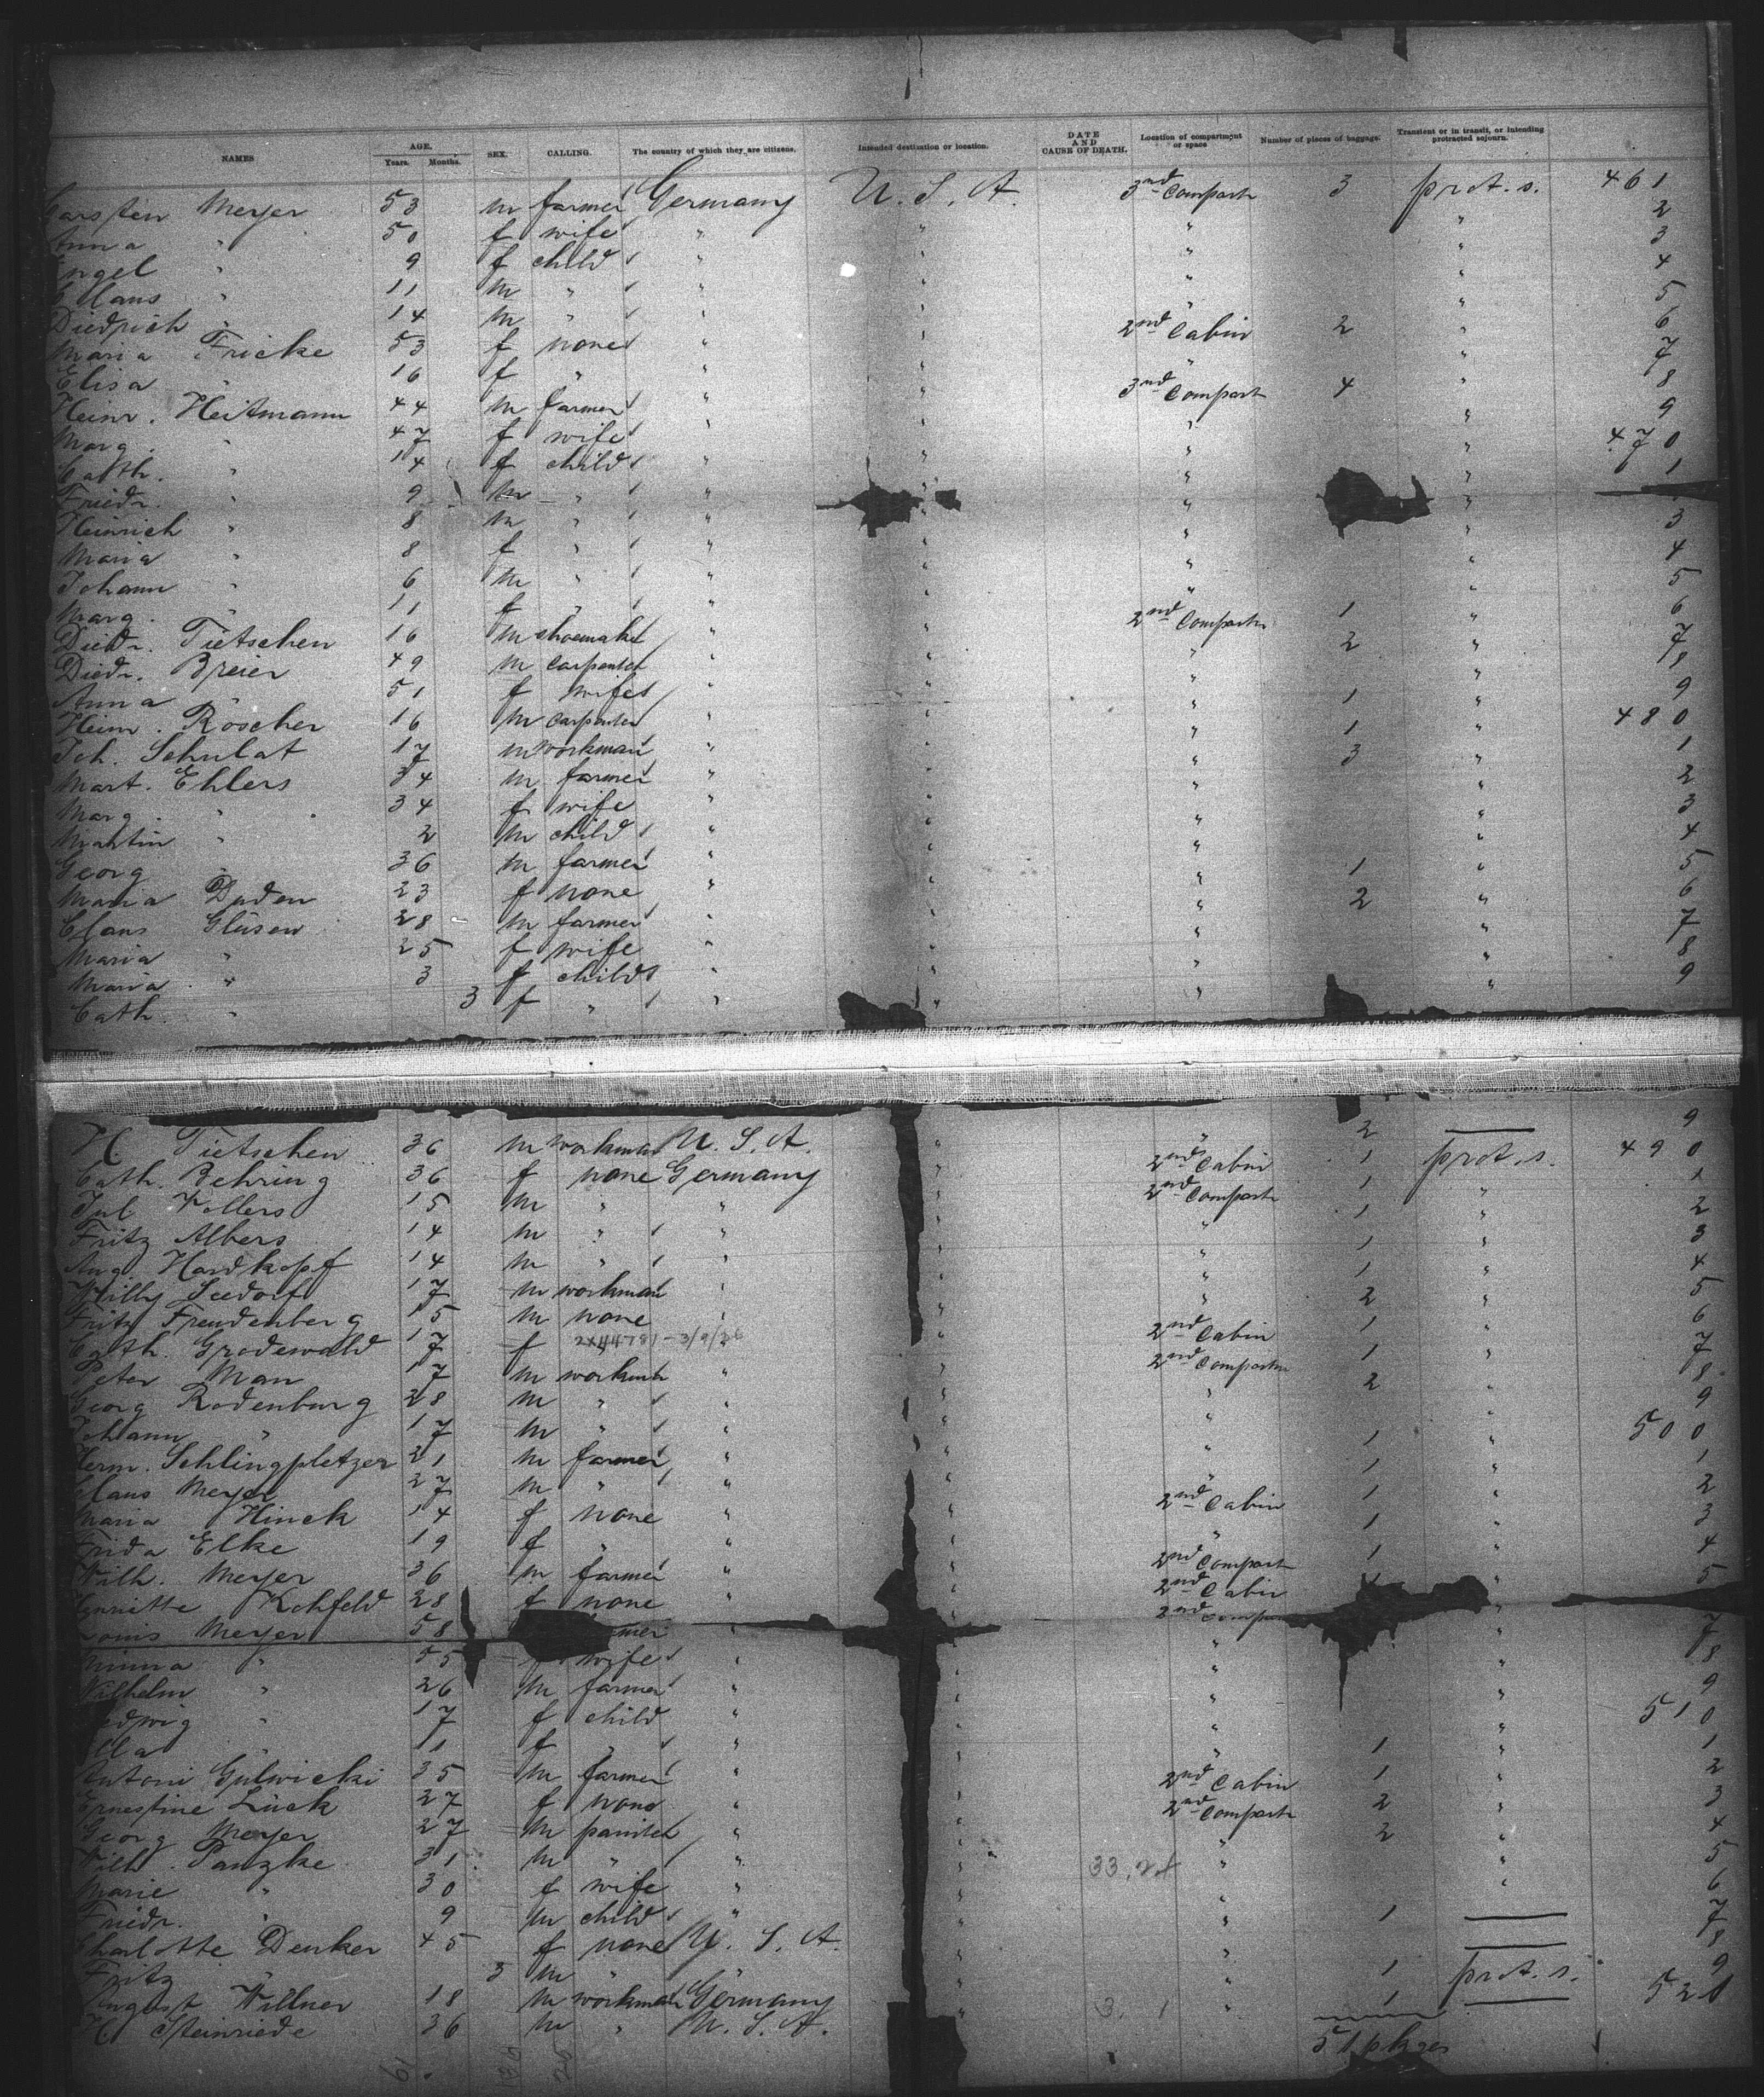 NAMES AGE. Years. Months. SEX. CALLING. The country of which they are citizens. Intended destination or location. DATE AND CAUSE OF DEATH. Location of compartment or space Number of pieces of baggage. Transient or in transit, or intending protracted sojourn.
Carsten Meyer 53 m farmer Germany U. S. A. 3nd Compart 3 prot. s. 461
Anna " 50 f wife " " " " 2
Engel " 9 f child " " " " 3
Claus " 11 m " " " " " 4
Diedrich " 14 m " " " " " 5
Maria Fricke 53 f none " " 2nd Cabin 2 " 6
Elisa " 16 f " " " " " 7
Heinr. Heitmann 44 m farmer " " 3nd Compart 4 " 8
Marg. " 47 f wife " " " " 9
Cath. " 14 f child " " " " 470
Friedr. " 9 m " " " " " 1
Heinrich " 8 m " " " " "
Maria " 8 f " " " " " 3
Johann " 6 m " " " " " 4
Marg. " 11 f " " " " " 5
Diedr. Tietschen 16 m shoemaker " " 2nd Compart 1 " 6
Diedr. Breier 49 m carpenter " " " 2 " 7
Anna " 51 f wife " " " " 8
Heinr. Röscher 16 m carpenter " " " 1 " 9
Joh. Schulat 17 m workman " " " 1 " 480
Mart. Ehlers 34 m farmer " " " 3 " 1
Marg. " 34 f wife " " " " 2
Martin " 2 m child " " " " 3
Georg " 36 m farmer " " " " 4
Maria Duden 23 f none " " " 1 " 5
Claus Glüsen 28 m farmer " " " 2 " 6
Maria " 25 f wife " " " " 7
Maria " 3 f child " " " " 8
Cath. " 3 f " " " " " 9
H. Tietschen 36 m workman U. S. A. " " 2 — 9
Cath. Behring 36 f none Germany " 2nd Cabin 1 prot. s. 490
Jul Kollers 15 m " " " 2nd Compart 1 " 1
Fritz Albers 14 m " " " " 1 " 2
Aug. Hardkopf 14 m " " " " 1 " 3
Willy Seedorf 17 m workman " " " 1 " 4
Fritz Freudenberg 15 m none " " " 2 " 5
Cath. Grodewald 17 f 2X44781-3/9/36 " 2nd Cabin 1 " 6
Peter Man 17 m workman " " 2nd Compart 1 " 7
Georg Rodenburg 28 m " " " " 2 " 8
Johann " 17 m " " " " " 9
Herm. Schlingpletzer 21 m farmer " " " 1 " 500
Claus Meyer 27 m " " " " 1 " 1
Maria Hinck 14 f none " " 2nd Cabin 1 " 2
Frida Elke 19 f " " " " 1 " 3
Wilh. Meyer 36 m farmer " " 2nd Compart 1 " 4
Henriette Kohfeld 28 f none " " 2nd Cabin " 5
Louis Meyer 58 " 2nd "
Minna " 55 f wife " " " " 7
Wilhelm " 26 m farmer " " " " 8
Hedwig " 17 f child " " " " 9
Ella " 11 f " " " " " 510
Antoni Gulwicki 35 m farmer " " " 1 " 1
Ernestine Lück 27 f none " " 2nd Cabin 1 " 2
Georg Meyer 27 m painter " " 2nd Compart 2 " 3
Wilh. Panzke 31 m " " " " 2 " 4
Marie " 30 f wife " " 33,24 " " 5
Friedr. " 9 m child " " " " 6
Charlotte Denker 45 f none U. S. A. " " 1 — 7
Fritz " 3 m " " " " — 8
August Willner 18 m workman Germany " " 1 prot. s. 9
H. Steinriede 36 m " U. S. A. " 3. 1 " 1 — 520
51 pkges